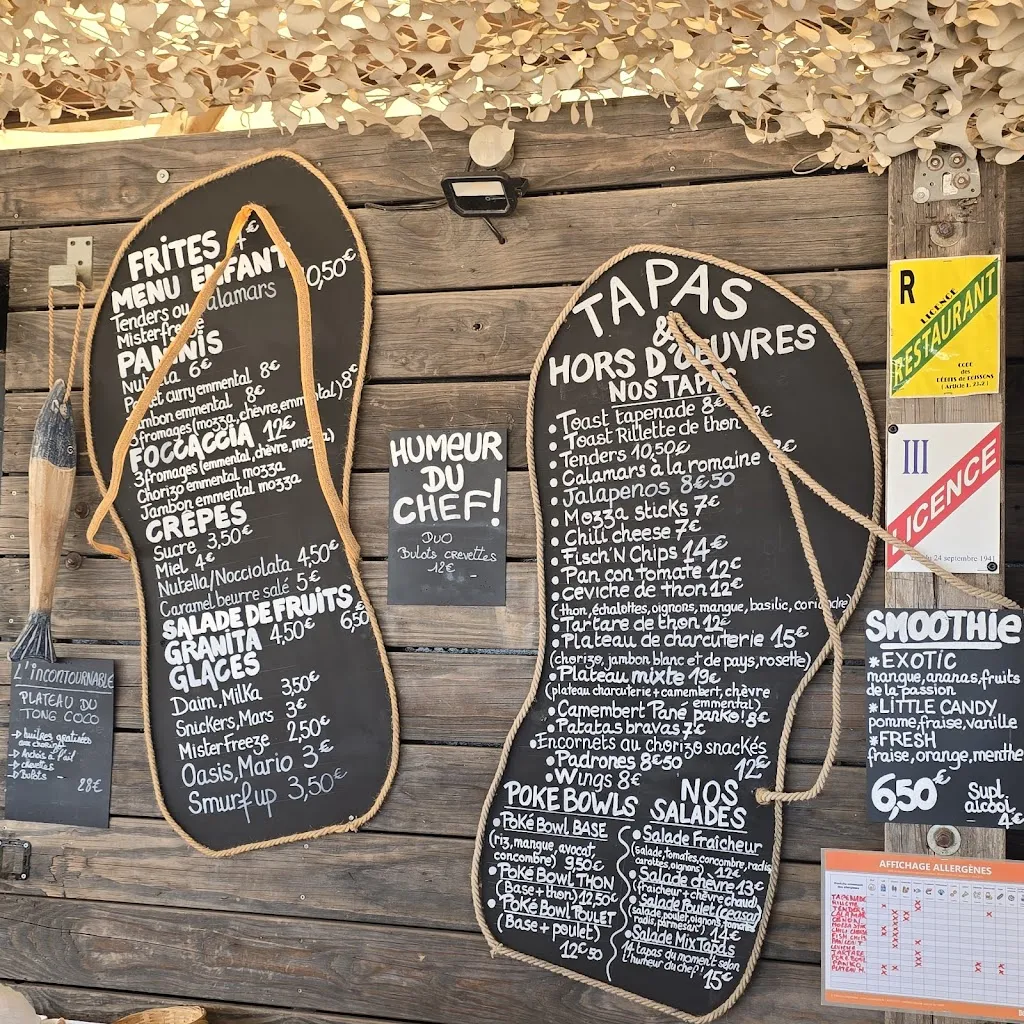 FRITES 4€
MENU ENFANT
Tenders ou Calamars 10,50€
Misterfreeze
PANINIS
Nutella 6€
Poulet curry emmental 8€
Jambon emmental 8€
3 fromages (mozza, chèvre, emmental) 8€
FOCCACCIA 12€
3 fromages (emmental, chèvre, mozza)
Chorizo emmental mozza
Jambon emmental mozza
CRÊPES
Sucre 3,50€
Miel 4€
Nutella/Nocciolata 4,50€
Caramel beurre salé 5€
SALADE DE FRUITS 6,50
GRANITA 4,50€
GLACES
Daim, Milka 3,50€
Snickers, Mars 3€
Mister Freeze 2,50€
Oasis, Mario 3€
Smurf up 3,50€
L'incontournable
PLATEAU DU
TONG COCO
→ huîtres gratinées
au chorizo
→ à l'ail
→ crevettes
→ Bulots
28€
HUMEUR
DU
CHEF!
DUO
Bulots crevettes
12€
TAPAS
&
HORS D'ŒUVRES
NOS TAPAS
• Toast tapenade 8€
• Toast Rillette de thon
• Tenders 10,50€
• Calamars à la romaine
• Jalapenos 8€50
• Mozza sticks 7€
• Chili cheese 7€
• Fisch'N Chips 14€
• Pan con tomate 12€
• Ceviche de thon 12€
(thon, échalottes, oignons, mangue, basilic, coriandre)
• Tartare de thon 12€
• Plateau de charcuterie 15€
(chorizo, jambon blanc et de pays, rosette)
• Plateau mixte 19€
(plateau charcuterie + camembert, chèvre
emmental)
• Camembert Pané panko! 8€
• Patatas bravas 7€
• Encornets au chorizo snackés
12€
• Padrones 8€50
• Wings 8€
POKE BOWLS
• Poké Bowl BASE
(riz, mangue, avocat,
concombre) 9,50€
• Poké Bowl THON
(Base + thon) 12,50€
• Poké Bowl POULET
(Base + poulet)
12€50
NOS
SALADES
• Salade Fraîcheur
(salade, tomates, concombre, radis,
carottes, oignons) 12€
• Salade chèvre 13€
(fraîcheur + chèvre chaud)
• Salade Poulet (ceasar)
(salade, poulet, oignons, tomates
radis, parmesan) 14€
• Salade Mix Tapas
tapas du moment selon
l'humeur du chef! 15€
R
LICENCE
RESTAURANT
CODE
des
DÉBITS de BOISSONS
( Article L. 23.2 )
III
LICENCE
du 24 septembre 1941
SMOOTHIE
*EXOTIC
mangue, ananas, fruits
de la passion
*LITTLE CANDY
pomme, fraise, vanille
*FRESH
fraise, orange, menthe
6,50€
Supl.
alcool
4€
AFFICHAGE ALLERGÈNES
TAPENADE
TENDERS
CALAMAR
MOZZA STICK
CHILI CHEESE
FISH CHIPS
PAN CONT
CEVICHE
TARTARE
POKE BOWL
PANKO